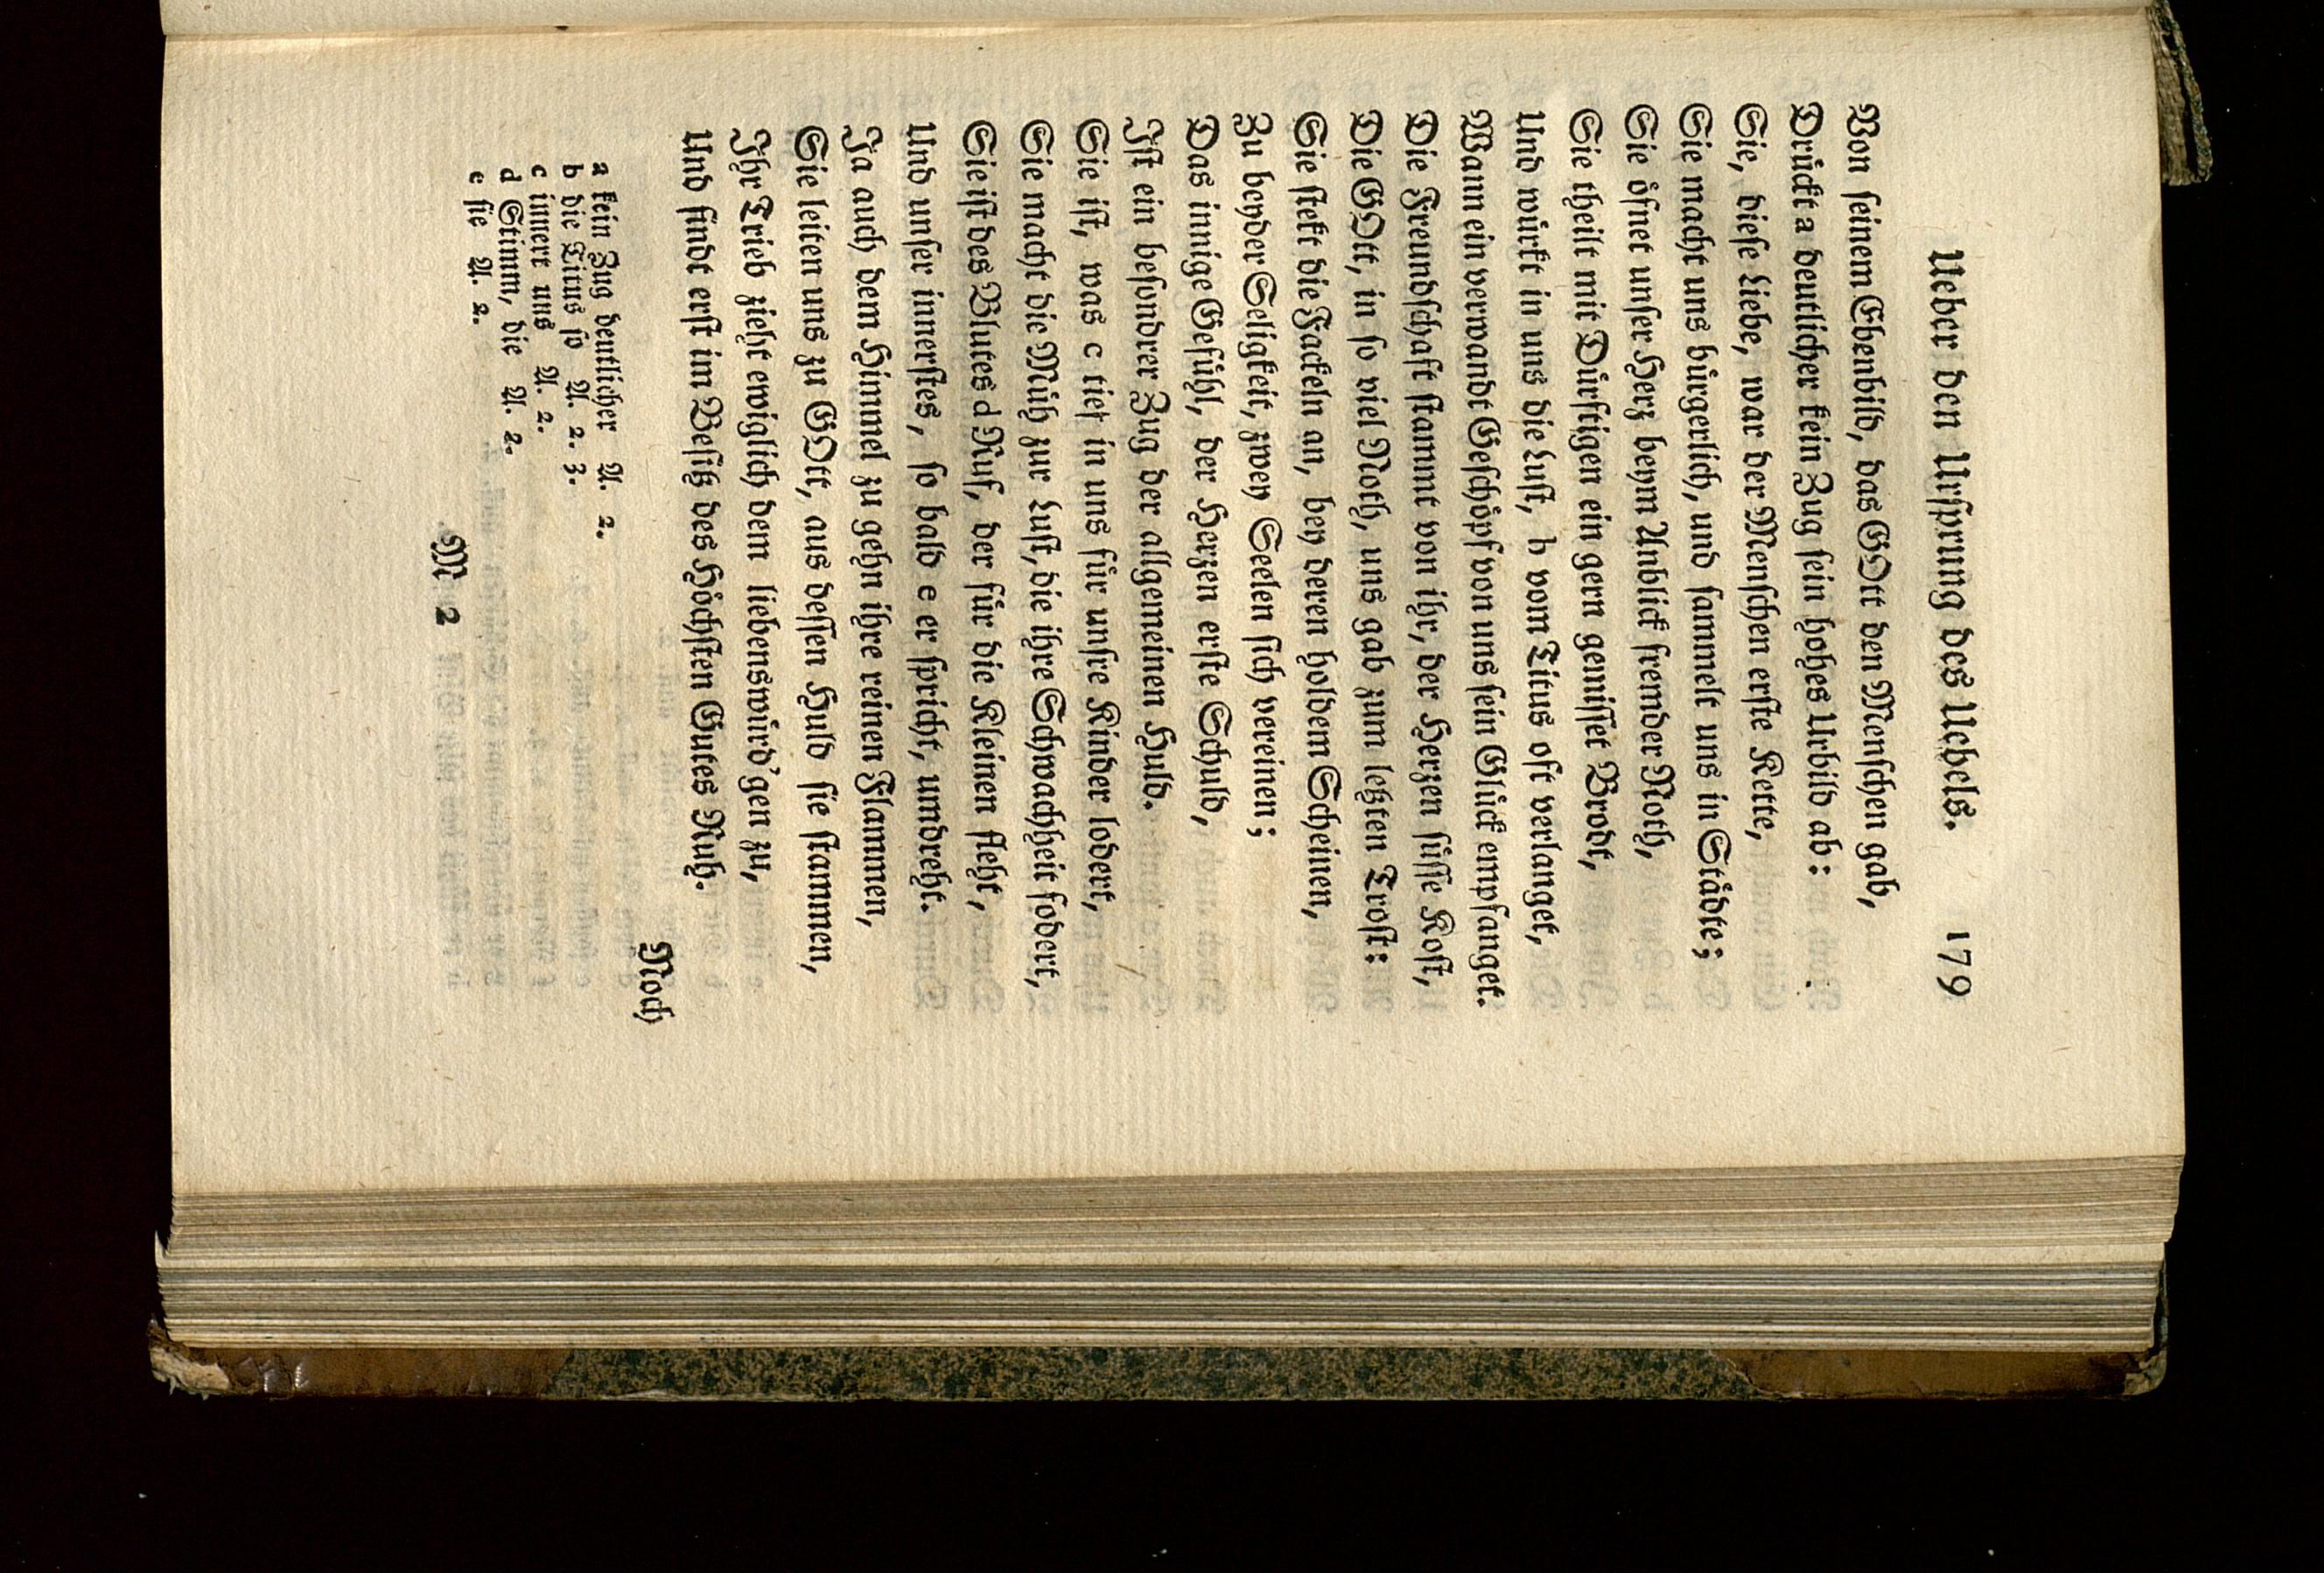 Ueber den Ursprung des Uebels. 179
Von seinem Ebenbild, das GOtt den Menschen gab,
Drückt a deutlicher kein Zug sein hohes Urbild ab:
Sie, diese Liebe, war der Menschen erste Kette,
Sie macht uns bürgerlich, und sammelt uns in Städte;
Sie öfnet unser Herz beym Anblick fremder Noth,
Sie theilt mit Dürftigen ein gern gemisset Brodt,
Und würkt in uns die Lust, b vom Titus oft verlanget,
Wann ein verwandt Geschöpf von uns sein Glück empfanget.
Die Freundschaft stammt von ihr, der Herzen süsse Kost,
Die GOtt, in so viel Noth, uns gab zum letzten Trost:
Sie stekt die Fackeln an, bey deren holdem Scheinen,
Zu beyder Seligkeit, zwey Seelen sich vereinen;
Das innige Gefühl, der Herzen erste Schuld,
Ist ein besondrer Zug der allgemeinen Huld.
Sie ist, was c tief in uns für unsre Kinder lodert,
Sie macht die Müh zur Lust, die ihre Schwachheit fodert,
Sie ist des Blutes d Ruf, der für die Kleinen fleht,
Und unser innerstes, so bald e er spricht, umdreht.
Ja auch dem Himmel zu gehn ihre reinen Flammen,
Sie leiten uns zu GOtt, aus dessen Huld sie stammen,
Ihr Trieb zieht ewiglich dem liebenswürd'gen zu,
Und findt erst im Besitz des Höchsten Gutes Ruh.
Noch
a kein Zug deutlicher A. 2.
b die Titus so A. 2. 3.
c innert uns A. 2.
d Stimm, die A. 2.
e sie A. 2.
M 2